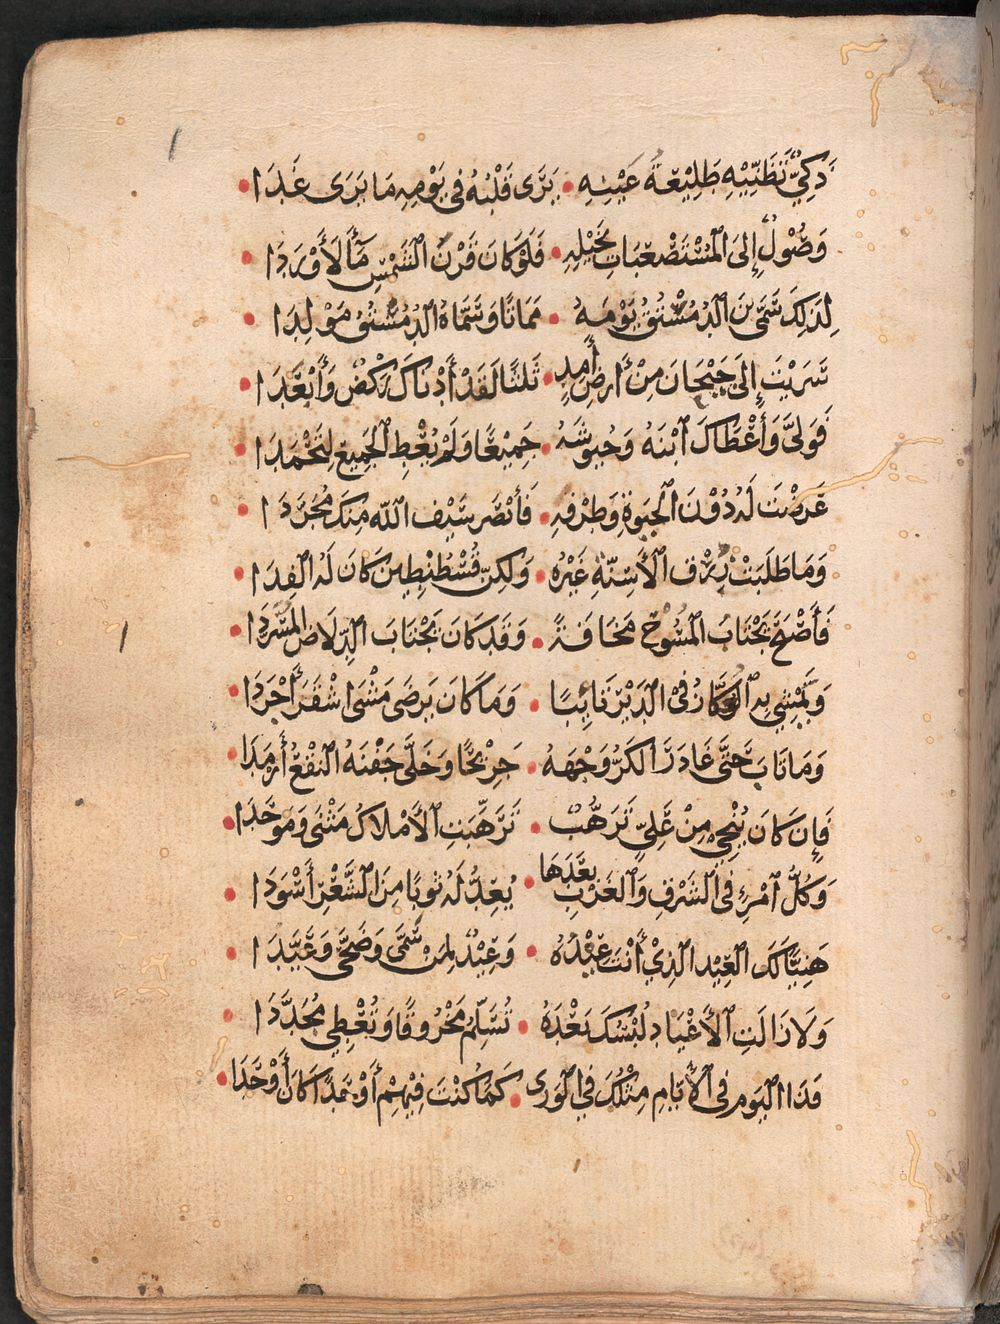 ذَكِيٌّ تَظَنِّيْهِ طَلِيْعَةُ عَيْنِهِ • يَرَى قَلْبُهُ فِي يَوْمِهِ مَا يَرَى غَدَا •
وَصُوْلٌ إِلَى الْمُسْتَصْعَبَاتِ بِخَيْلِهِ • فَلَوْ كَانَ قَرْنُ الشَّمْسِ مَآءً لَأَوْرَدَا •
لِذَلِكَ سَمَّى بْنُ الدُّمُسْتُقِ يَوْمَهُ • مَمَاتًا وَسَمَّاهُ الدُّمُسْتُقُ مَوْلِدَا •
سَرَيْتَ إِلَى جَيْحَانَ مِنْ أَرْضِ آمِدٍ • ثَلَثًا لَقَدْ أَدْنَاكَ رَكْضٌ وَأَبْعَدَا •
فَوَلَّى وَأَعْطَاكَ ابْنَهُ وَجُيُوشَهُ • جَمِيْعًا وَلَمْ يُعْطِ الْجَمِيعَ لِتُحْمَدَا •
عَرَضْتَ لَهُ دُوْنَ الْحَيَوةِ وَطَرْفِهِ • فَأَبْصَرَ سَيْفَ اللّٰهِ مِنْكَ مُجَرَّدَا •
وَمَا طَلَبَتْ زُرْقُ الْأَسِنَّةِ غَيْرَهُ • وَلَكِنَّ قُسْطَنْطِينَ كَانَ لَهُ الْفِدَا •
فَأَصْبَحَ يَجْتَابُ الْمُسُوْحَ مَخَافَةً • وَقَدْ كَانَ يَجْتَابُ الدِّلَاصَ الْمُسَرَّدَا •
وَيَمْشِي بِهِ الْعُكَّازُ فِي الدَّيْرِ تَائِبًا • وَمَا كَانَ يَرْضَى مَشْيَ اشْقَرَ أَجْرَدَا •
وَمَا تَابَ حَتَّى غَادَرَ الْكَرُّ وَجْهَهُ • جَرِيْحًا وَخَلَّى جَفْنَهُ النَّقْعُ أَرْمَدَا •
فَإِنْ كَانَ يُنْجِي مِنْ عَلِيٍّ تَرَهُّبٌ • تَرَهَّبَتِ الْأَمْلَاكُ مَثْنَى وَمَوْحَدَا •
وَكُلُّ امْرِءٍ فِي الشَّرْقِ وَالْغَرْبِ بَعْدَهَا • يُعِدُّ لَهُ ثَوْبًا مِنَ الشَّعْرِ أَسْوَدَا •
هَنِيْئًا لَكَ الْعِيْدُ الَّذِيْ أَنْتَ عِيْدُهُ • وَعِيْدٌ لِمَنْ سَمَّى وَضَحَّى وَعَيَّدَا •
وَلَا زَالَتِ الْأَعْيَادُ لُبْسَكَ بَعْدَهُ • تُسَلِّمُ مَخْرُوقًا وَتُعْطِي مُجَدَّدَا •
فَذَا الْيَوْمُ فِي الْأَيَّامِ مِثْلُكَ فِي الْوَرَى • كَمَا كُنْتَ فِيْهِمْ أَوْحَدًا كَانَ أَوْحَدَا •